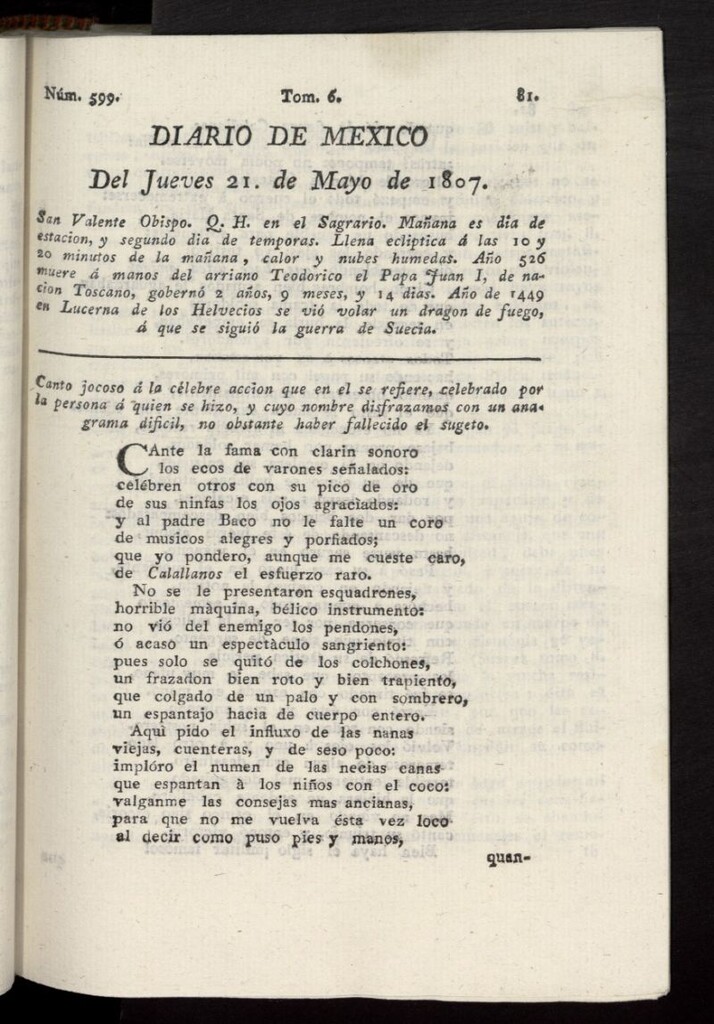 Núm. 599. Tom. 6. 81.
DIARIO DE MEXICO
Del Jueves 21. de Mayo de 1807.
San Valente Obispo. Q. H. en el Sagrario. Mañana es dia de
estacion, y segundo dia de temporas. Llena ecliptica á las 10 y
20 minutos de la mañana, calor y nubes humedas. Año 526
muere á manos del arriano Teodorico el Papa Juan I, de na-
cion Toscano, gobernó 2 años, 9 meses, y 14 dias. Año de 1449
en Lucerna de los Helvecios se vió volar un dragon de fuego,
á que se siguió la guerra de Suecia.
Canto jocoso á la célebre accion que en el se refiere, celebrado por
la persona á quien se hizo, y cuyo nombre disfrazamos con un ana-
grama dificil, no obstante haber fallecido el sugeto.
CAnte la fama con clarin sonoro
los ecos de varones señalados:
celébren otros con su pico de oro
de sus ninfas los ojos agraciados:
y al padre Baco no le falte un coro
de musicos alegres y porfiados;
que yo pondero, aunque me cueste caro,
de Calallanos el esfuerzo raro.
No se le presentaron esquadrones,
horrible màquina, bélico instrumento:
no vió del enemigo los pendones,
ó acaso un espectàculo sangriento:
pues solo se quitó de los colchones,
un frazadon bien roto y bien trapiento,
que colgado de un palo y con sombrero,
un espantajo hacia de cuerpo entero.
Aqui pido el influxo de las nanas
viejas, cuenteras, y de seso poco:
implóro el numen de las necias canas
que espantan à los niños con el coco:
valganme las consejas mas ancianas,
para que no me vuelva ésta vez loco
al decir como puso pies y manos,
quan-